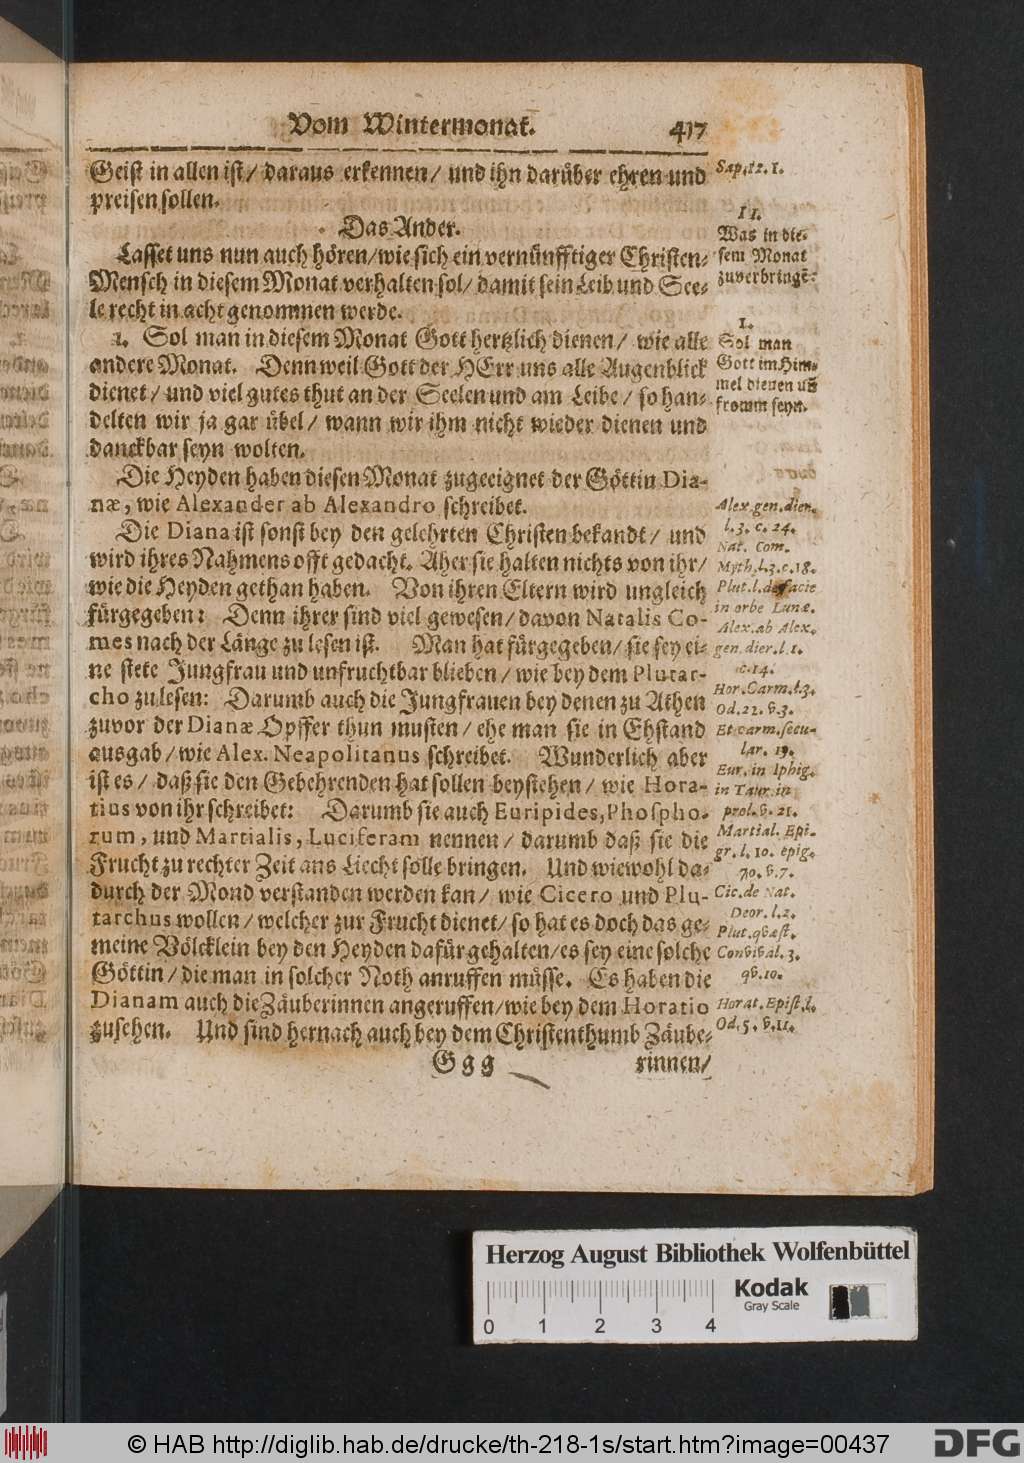 Vom Wintermonat. 417
Geist in allen ist/ daraus erkennen/ und ihn darüber ehren und
preisen sollen.
Das Ander.
Lasset uns nun auch hören/wie sich ein vernünfftiger Christen-
Mensch in diesem Monat verhalten sol/ damit sein Leib und See-
le recht in acht genommen werde.
1. Sol man in diesem Monat Gott hertzlich dienen/ wie alle
andere Monat. Denn weil Gott der HErr uns alle Augenblick
dienet/ und viel gutes thut an der Seelen und am Leibe/ so han-
delten wir ja gar übel/ wann wir ihm nicht wieder dienen und
danckbar seyn wolten.
Die Heyden haben diesen Monat zugeeignet der Göttin Dia-
næ, wie Alexander ab Alexandro schreibet.
Die Diana ist sonst bey den gelehrten Christen bekandt/ und
wird ihres Nahmens offt gedacht. Aber sie halten nichts von ihr/
wie die Heyden gethan haben. Von ihren Eltern wird ungleich
fürgegeben: Denn ihrer sind viel gewesen/ davon Natalis Co-
mes nach der Länge zu lesen ist. Man hat fürgegeben/ sie sey ei-
ne stete Jungfrau und unfruchtbar blieben/ wie bey dem Plutar-
cho zu lesen: Darumb auch die Jungfrauen bey denen zu Athen
zuvor der Dianæ Opffer thun musten/ ehe man sie in Ehstand
ausgab/ wie Alex. Neapolitanus schreibet. Wunderlich aber
ist es/ daß sie den Gebehrenden hat sollen beystehen/ wie Hora-
tius von ihr schreibet: Darumb sie auch Euripides, Phospho-
rum, und Martialis, Luciferam nennen/ darumb daß sie die
Frucht zu rechter Zeit ans Liecht solle bringen. Und wiewohl da-
durch der Mond verstanden werden kan/ wie Cicero und Plu-
tarchus wollen/ welcher zur Frucht dienet/ so hat es doch das ge-
meine Völcklein bey den Heyden dafür gehalten/es sey eine solche
Göttin/ die man in solcher Noth anruffen müsse. Es haben die
Dianam auch die Zäuberinnen angeruffen/wie bey dem Horatio
zusehen. Und sind hernach auch bey dem Christenthumb Zäube-
Ggg rinnen/
Sap. 12. 1.
II.
Was in die-
sem Monat
zuverbringē:
1.
Sol man
Gott im Him-
mel dienen uñ
fromm seyn.
Alex. gen. dier.
l. 3. c. 24.
Nat. Com.
Myth. l. 3. c. 18.
Plut. l. de facie
in orbe Lunæ.
Alex. ab Alex.
gen. dier. l. 1.
c. 14.
Hor. Carm. l. 3.
Od. 22. v. 3.
Et carm. secu-
lar. 19.
Eur. in Iphig.
in Taur. in
prol. v. 21.
Martial. Epi-
gr. l. 10. epig.
70. v. 7.
Cic. de Nat.
Deor. l. 2.
Plut. qvæst.
Convival. 3.
qv. 10.
Horat. Epist. l.
Od. 5. v. 11.
Herzog August Bibliothek Wolfenbüttel
Kodak
Gray Scale
0 1 2 3 4
© HAB http://diglib.hab.de/drucke/th-218-1s/start.htm?image=00437
DFG